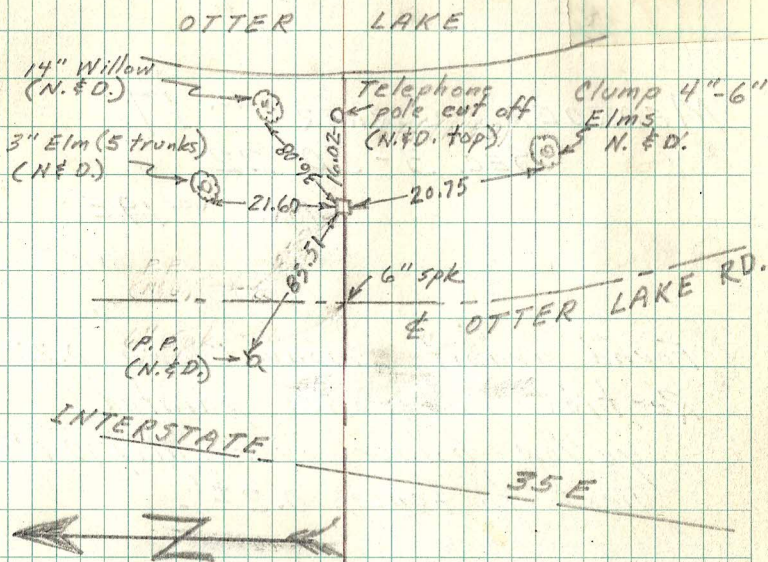 OTTER LAKE
14" Willow
(N.&D.)
Telephone
pole cut off
(N.&D. top)
Clump 4"-6"
Elms
N.&D.
3" Elm (5 trunks)
(N&D.)
16.02
21.67
20.75
85.51
6" spk
℄ OTTER LAKE RD.
P.P.
(N.&D.)
INTERSTATE 35E
N